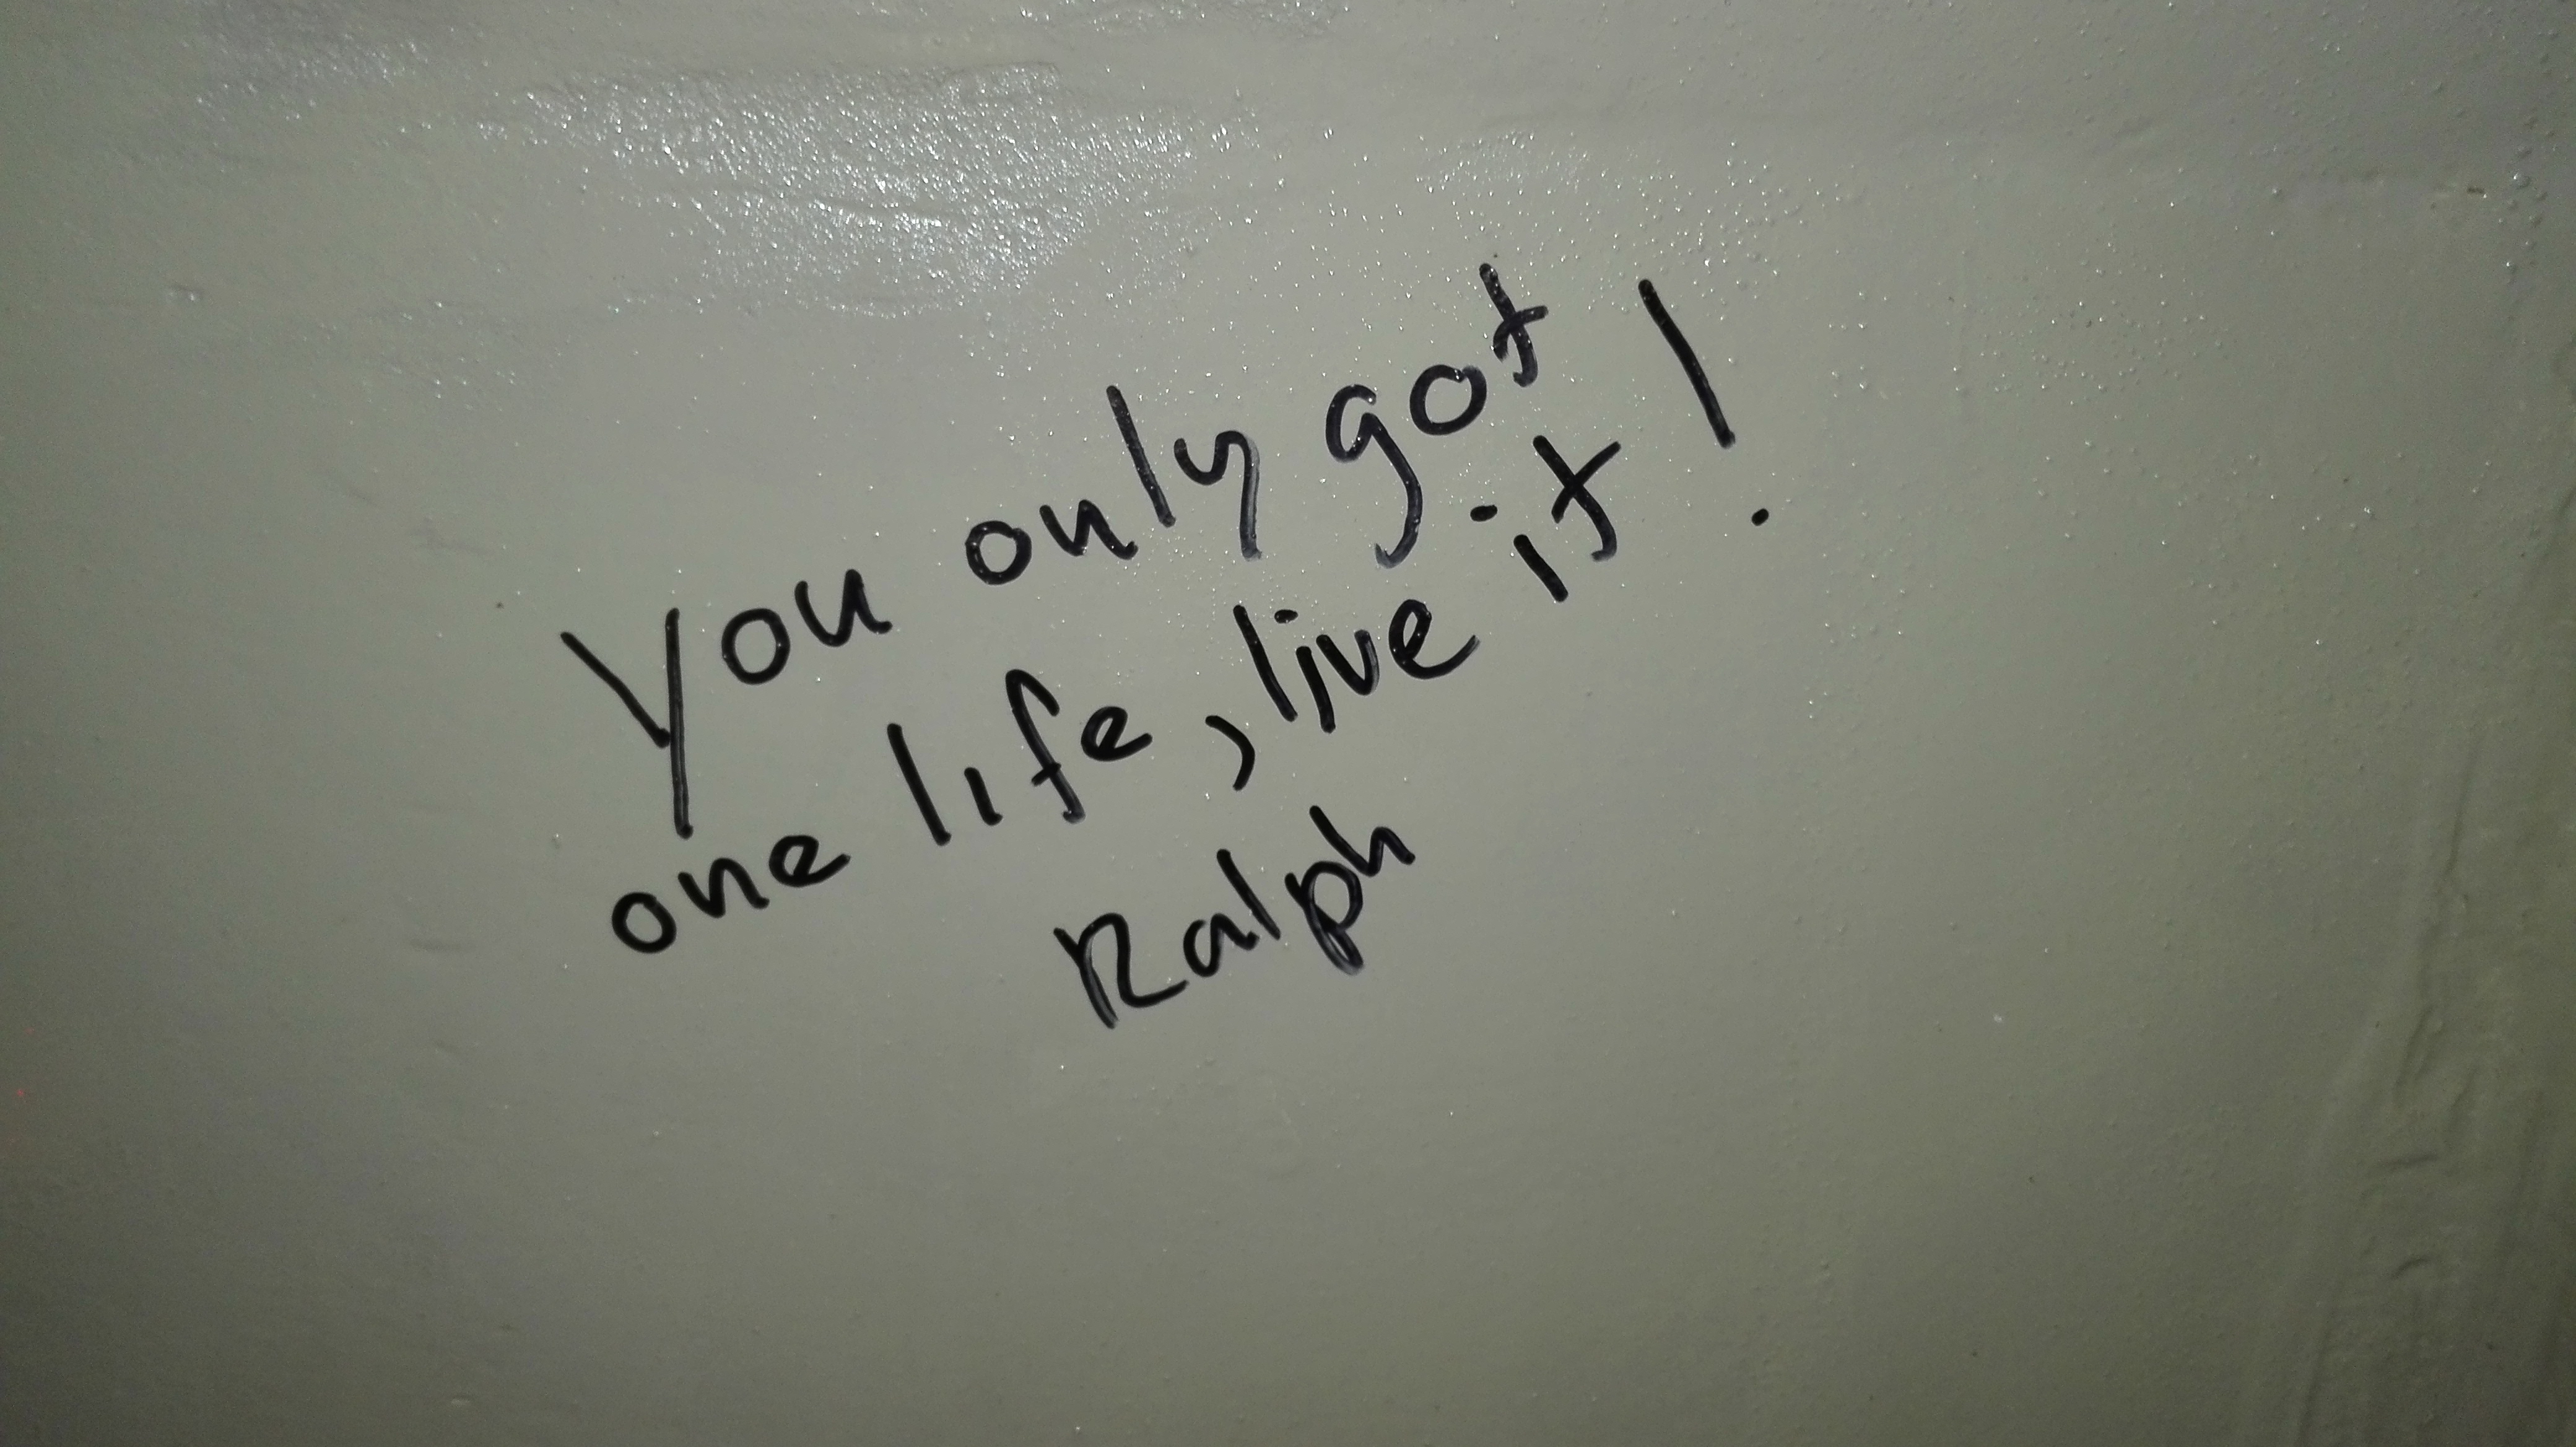 You only got
one life, live it!
Ralph